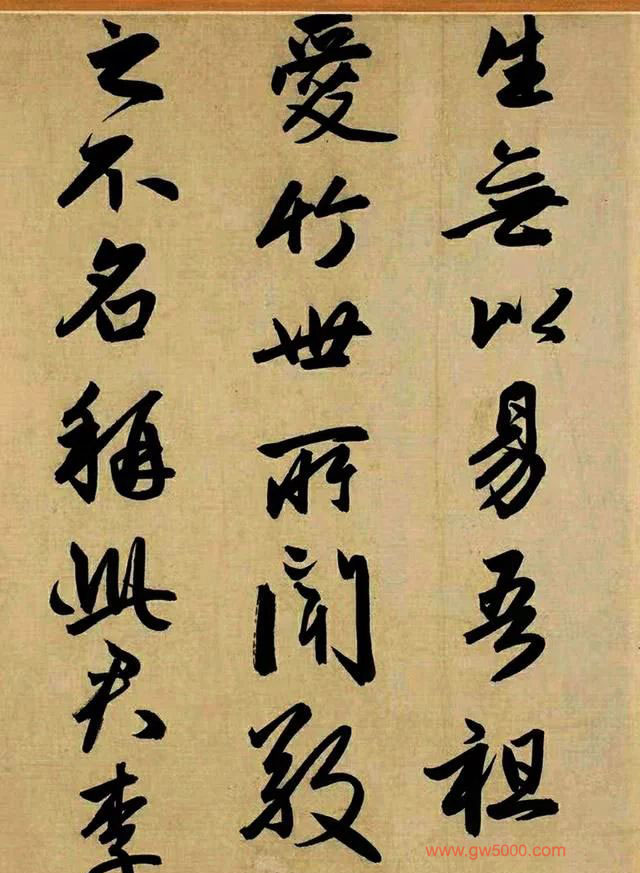 生無以易吾祖
愛竹世所聞敬
之不名稱此君李
www.gw5000.com